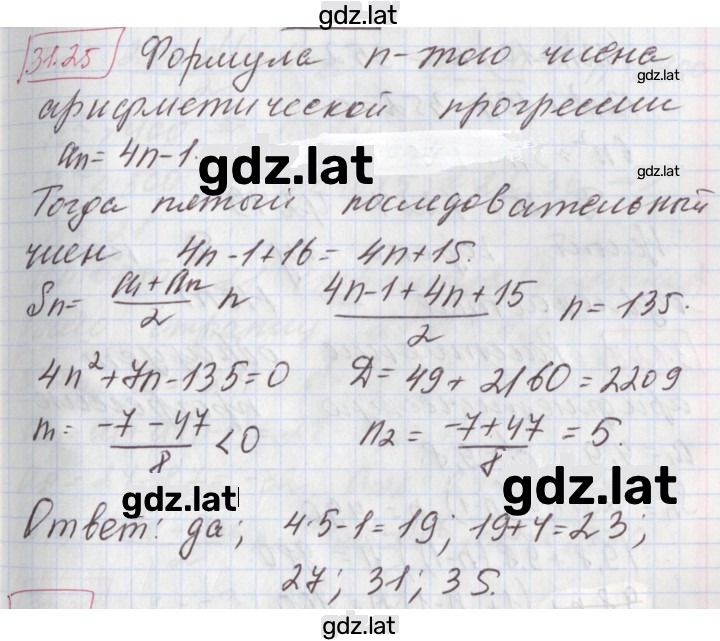 gdz.lat
31.25 Формула n-того члена
gdz.lat
арифметической прогрессии
aₙ = 4n-1.
gdz.lat
gdz.lat
Тогда пятый последовательный
член 4n-1+16 = 4n+15.
Sₙ = (a₁+aₙ)/2 n (4n-1+4n+15)/2 n = 135.
4n²+7n-135=0 D = 49+2160=2209
n₁ = (-7-47)/8 <0 n₂ = (-7+47)/8 = 5.
gdz.lat
gdz.lat
Ответ: да; 4·5-1=19; 19+4=23;
27; 31; 35.
gdz.lat